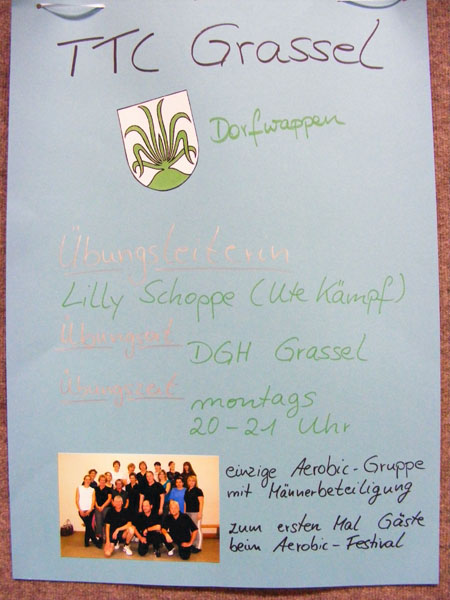 TTC Grassel
Dorfwappen
Übungsleiterin
Lilly Schoppe (Ute Kämpf)
Übungsort
DGH Grassel
Übungszeit
montags
20-21 Uhr
einzige Aerobic-Gruppe
mit Männerbeteiligung
zum ersten Mal Gäste
beim Aerobic-Festival